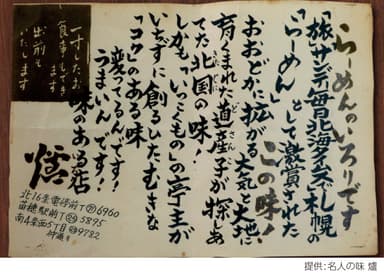 らーめんのいろりです
「旅・サンデー毎日・北海タイムス」でも札幌の
「らーめん」として激賞された
この味!
おおどかに拡がる大気と大地に
育くまれた道産子が探しあ
てた北国の味!
しかも「いっこくもの」の亭主が
いちずに創るひたむきな
「コク」のある味
変ってるんです!
うまいんです!
味のある店
爐
北16条電停前T(71)6960
苗穂駅前T(24)5895
南4条西5丁目
9782
一寸したお
食事もでき
ます
出前も
いたします
提供:名人の味 爐